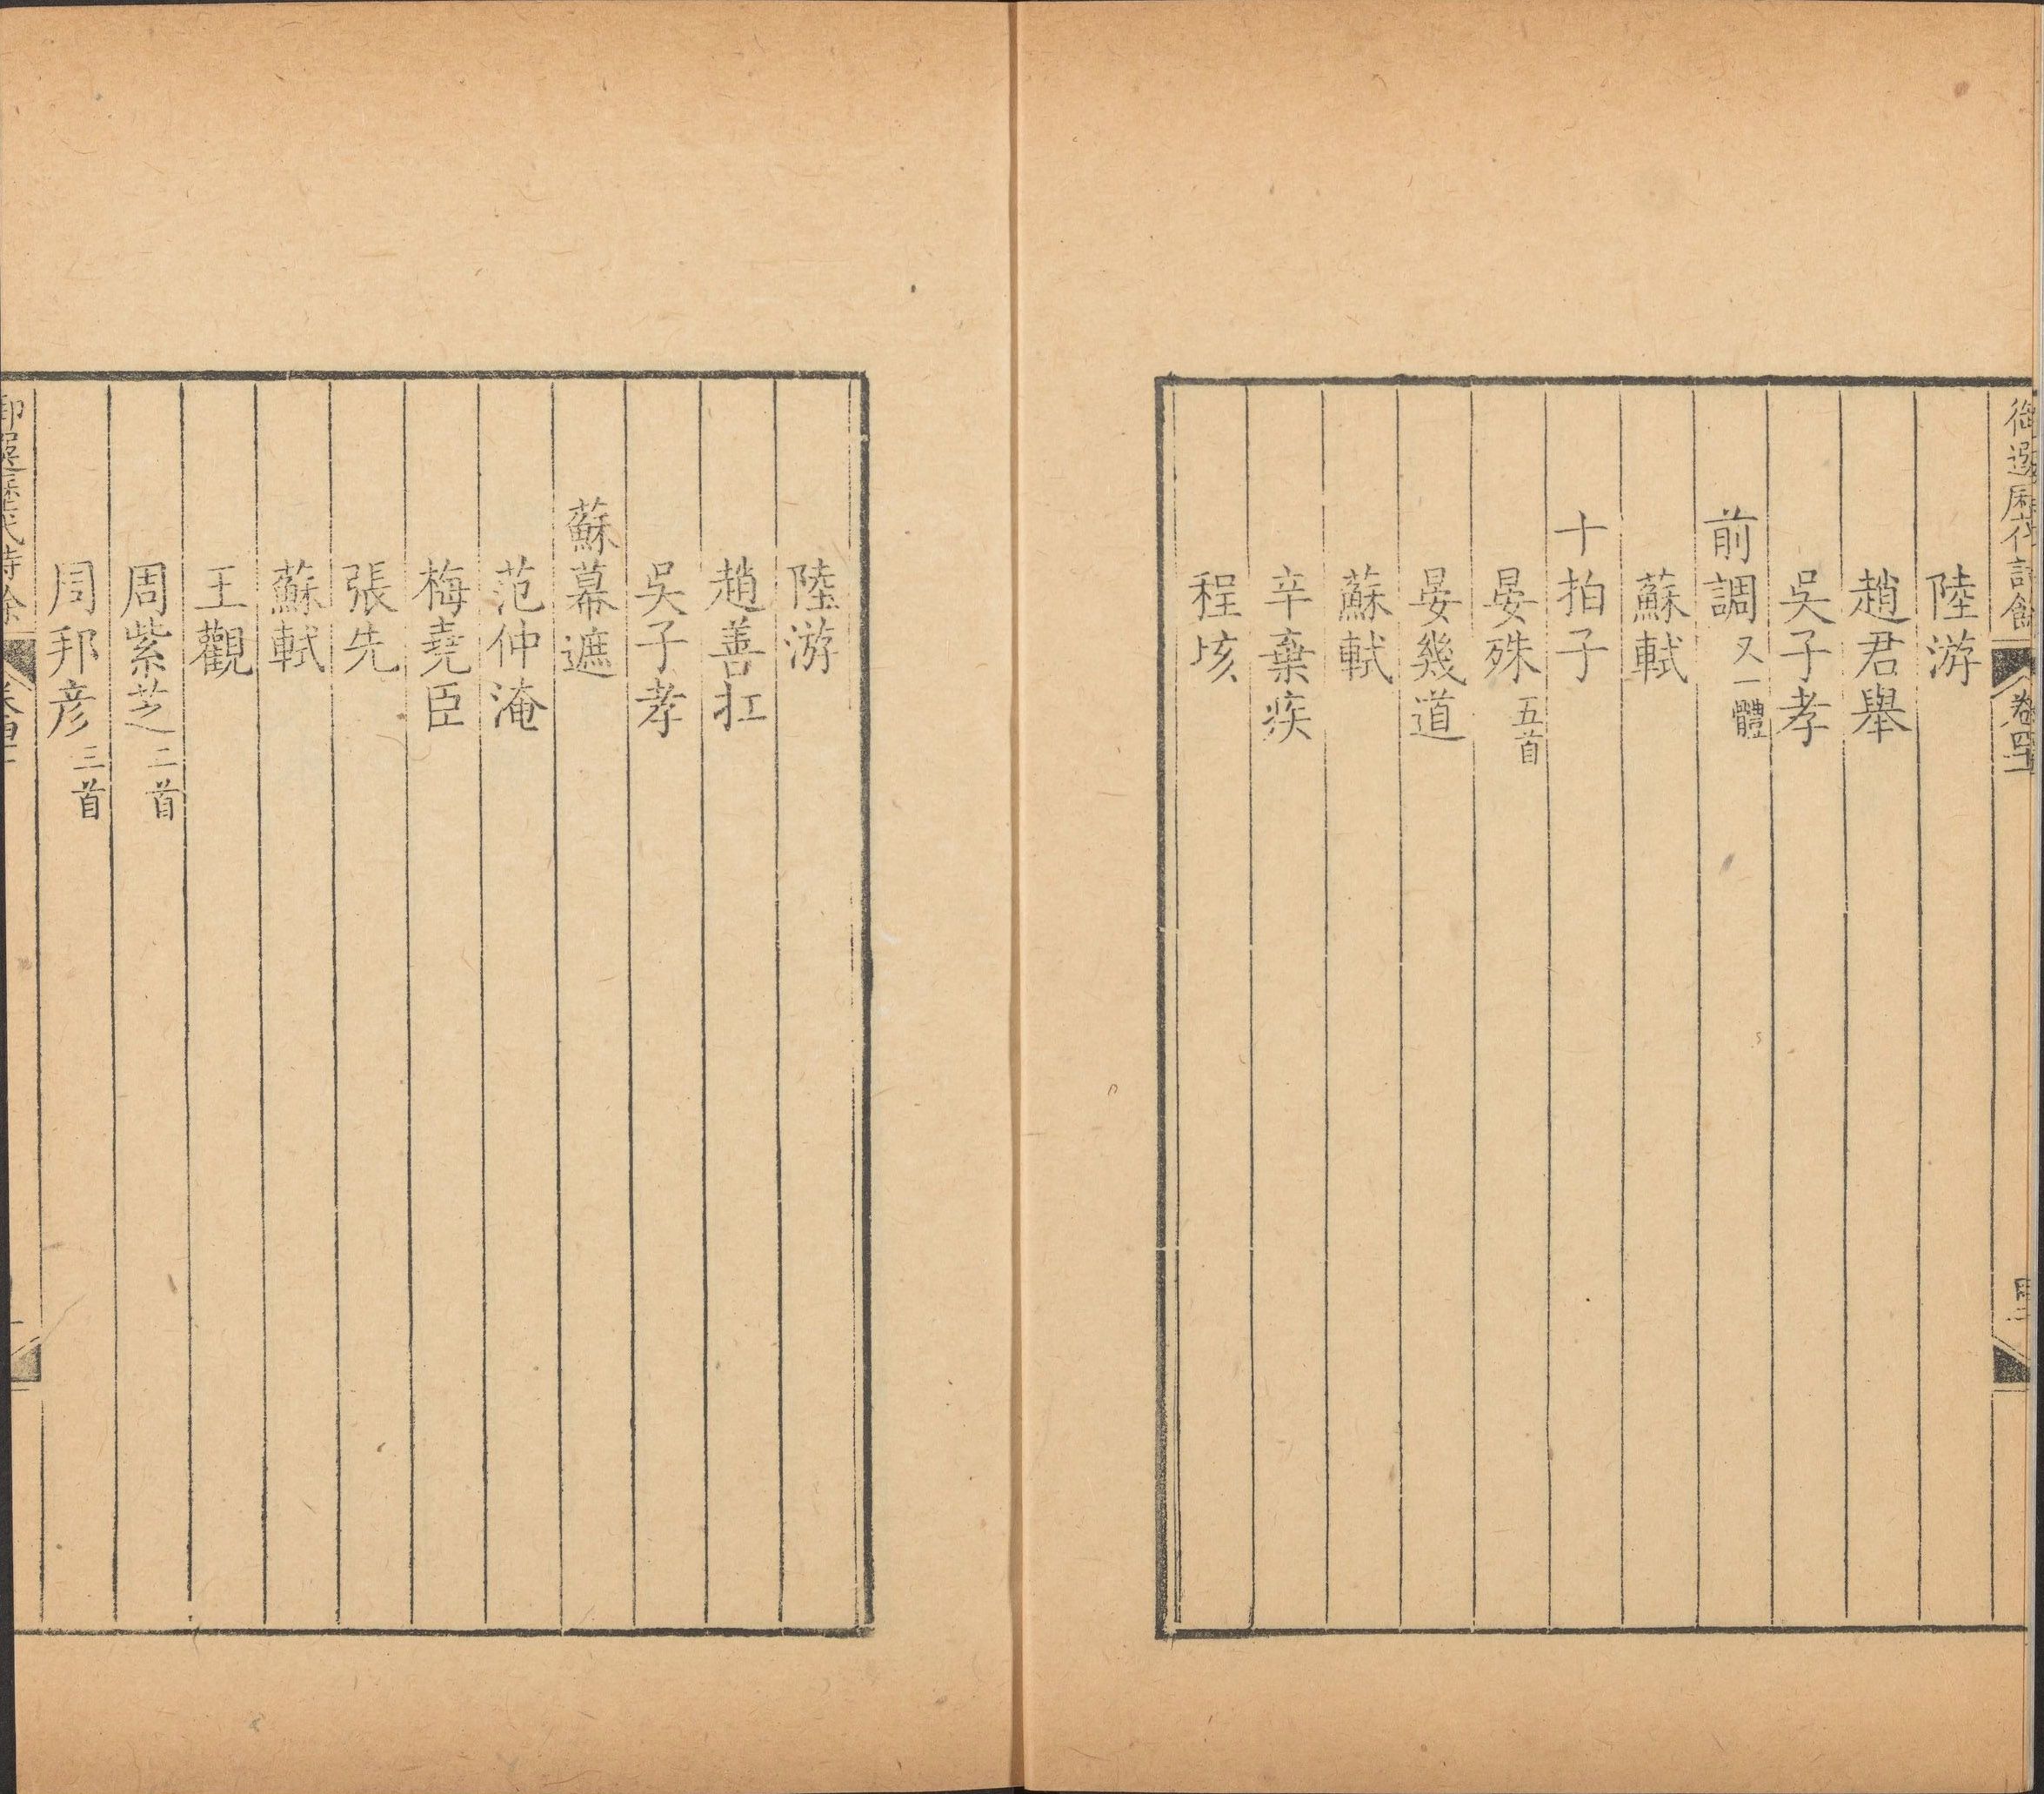 御選歷代詩餘
卷四十一
陸游
趙君舉
吳子孝
前調又一體
蘇軾
十拍子
晏殊五首
晏幾道
蘇軾
辛棄疾
程垓
陸游
趙善扛
吳子孝
蘇幕遮
范仲淹
梅堯臣
張先
蘇軾
王觀
周紫芝二首
周邦彥三首
御選歷代詩餘